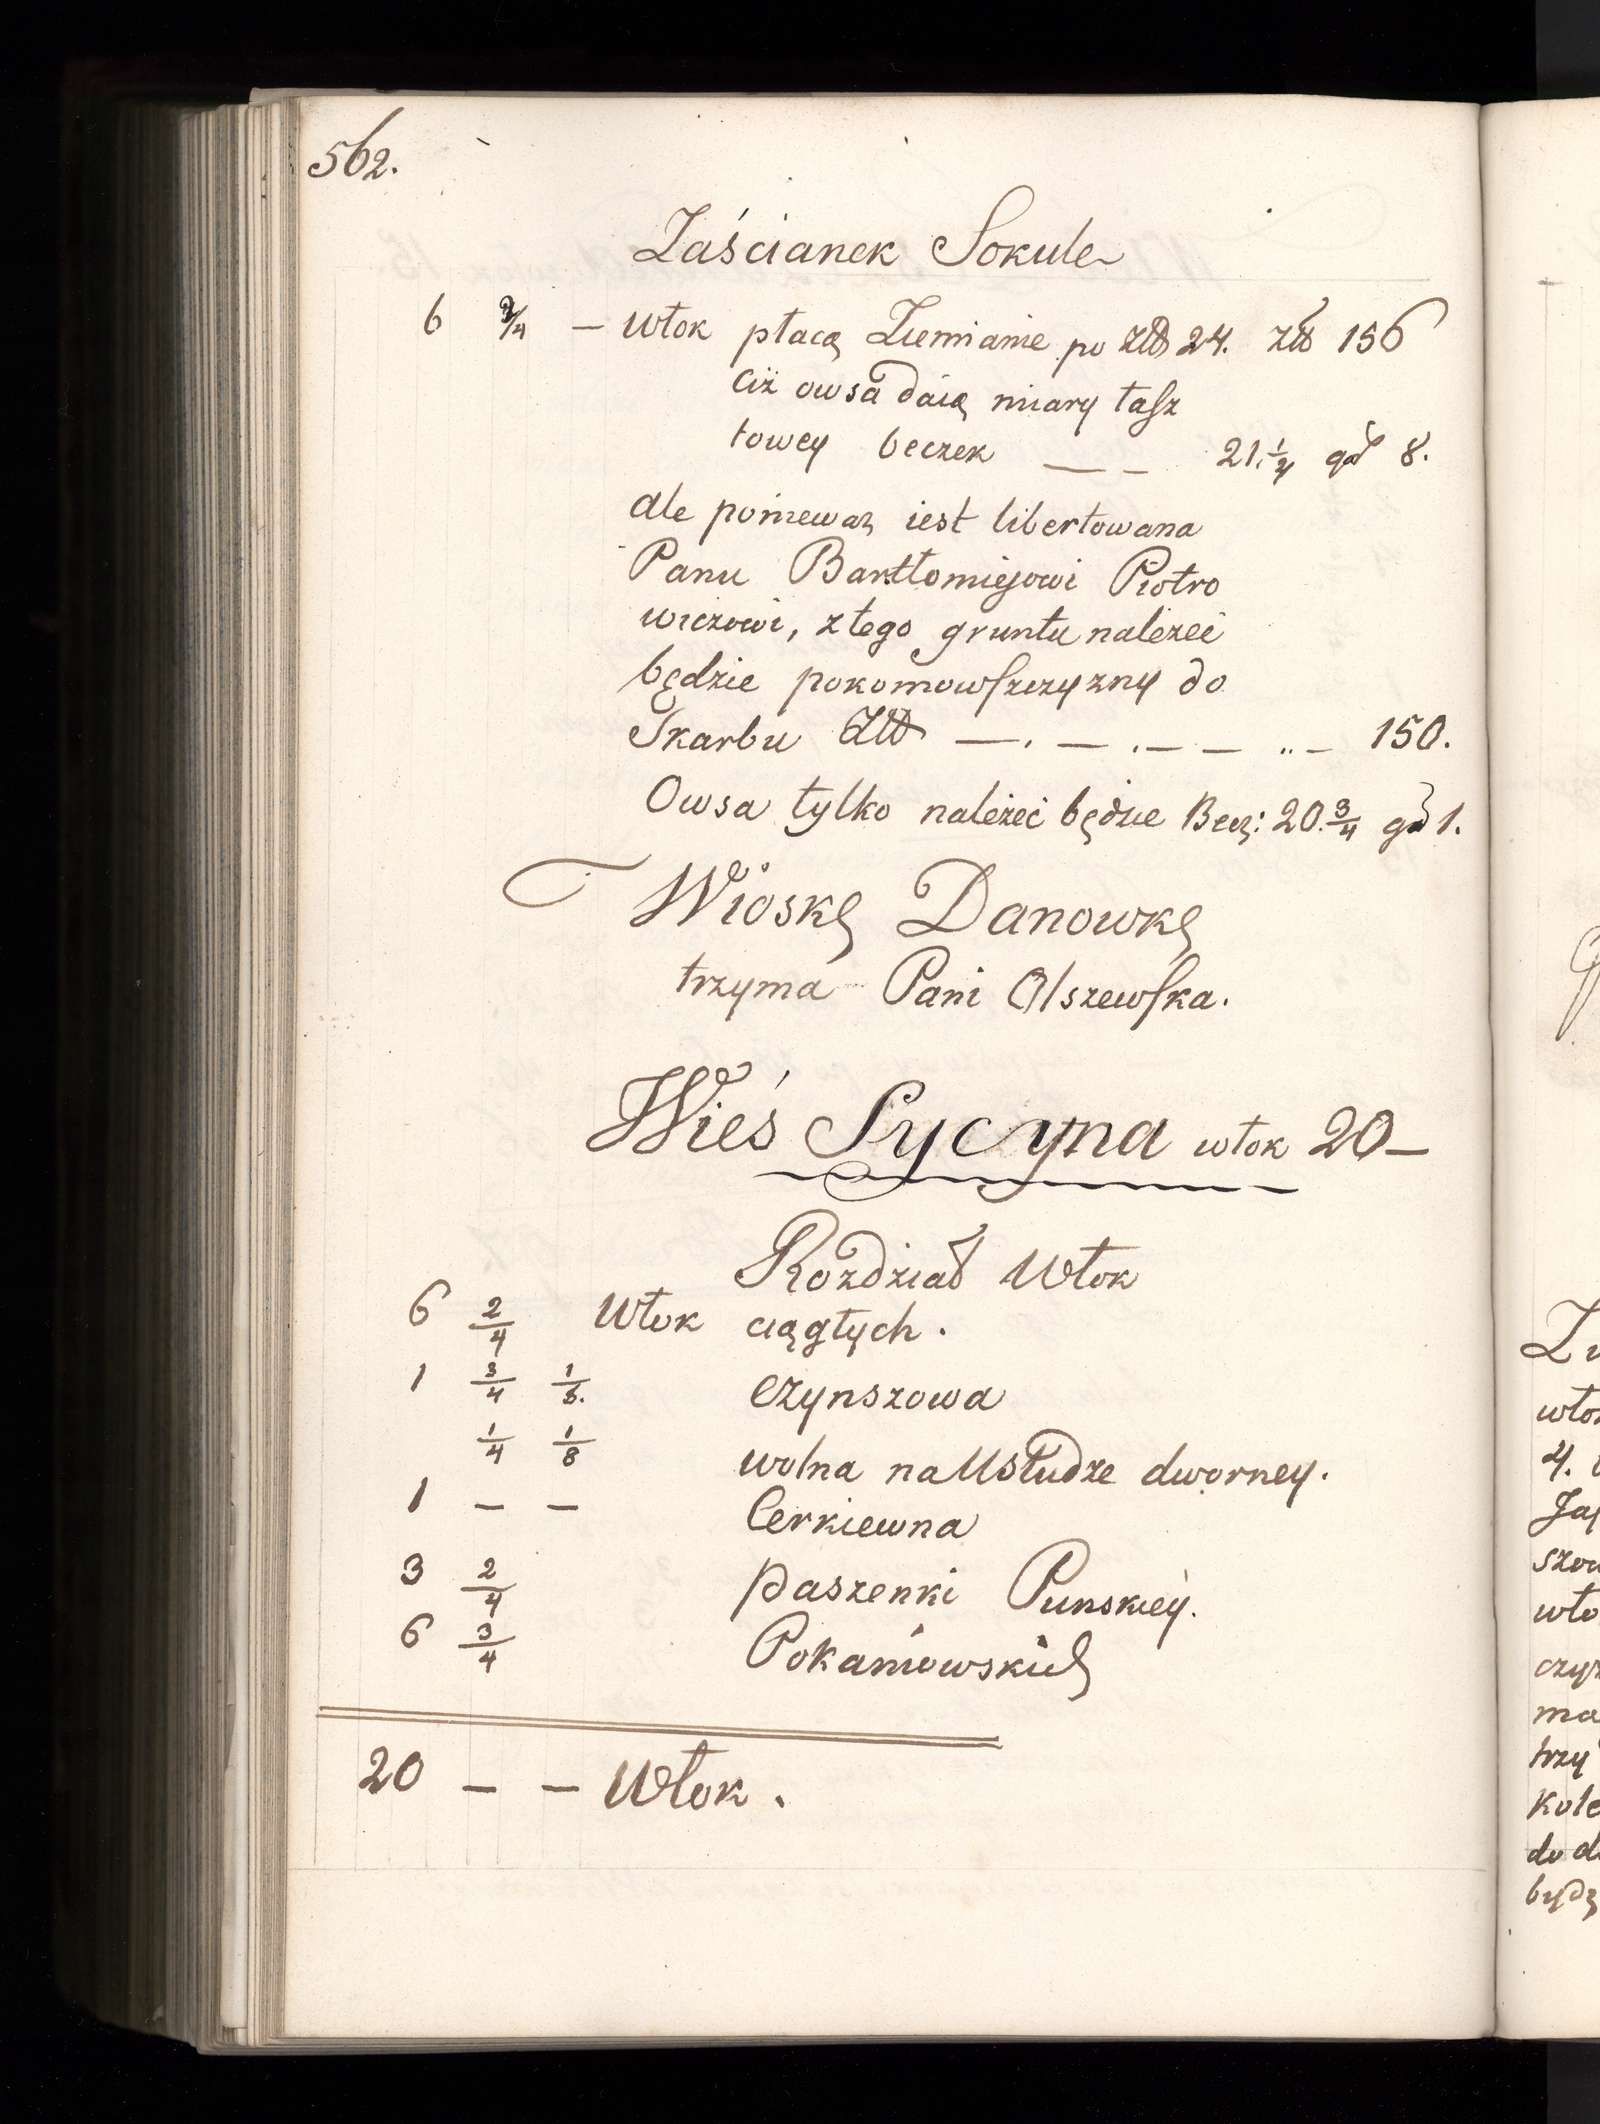 562.
Zaścianek Sokule
6 2/4 — Włok płacą Ziemianie po Złł 24. złł 156
ciż owsa daią miary tasz
towey beczek — — 21. 1/4 gar 8.
ale poniewaz iest libertowana
Panu Bartłomiejowi Piotro
wiczowi, z tego gruntu nalezeć
będzie pokomowszczyzny do
Skarbu Złł — . — . — — .. — 150.
Owsa tylko należeć będzie Becz: 20. 3/4 ga 1.
Wioskę Danowkę
trzyma Pani Olszewska.
Wieś Sycyna włok 20—
Rozdział Włok
6 2/4 Włok ciągłych.
1 3/4 1/8. czynszowa
1/4 1/8 wolna na Usłudze dworney.
1 — — Cerkiewna
3 2/4 paszenki Punskiey.
6 3/4 Pokaniowskich
20 — — Włok.